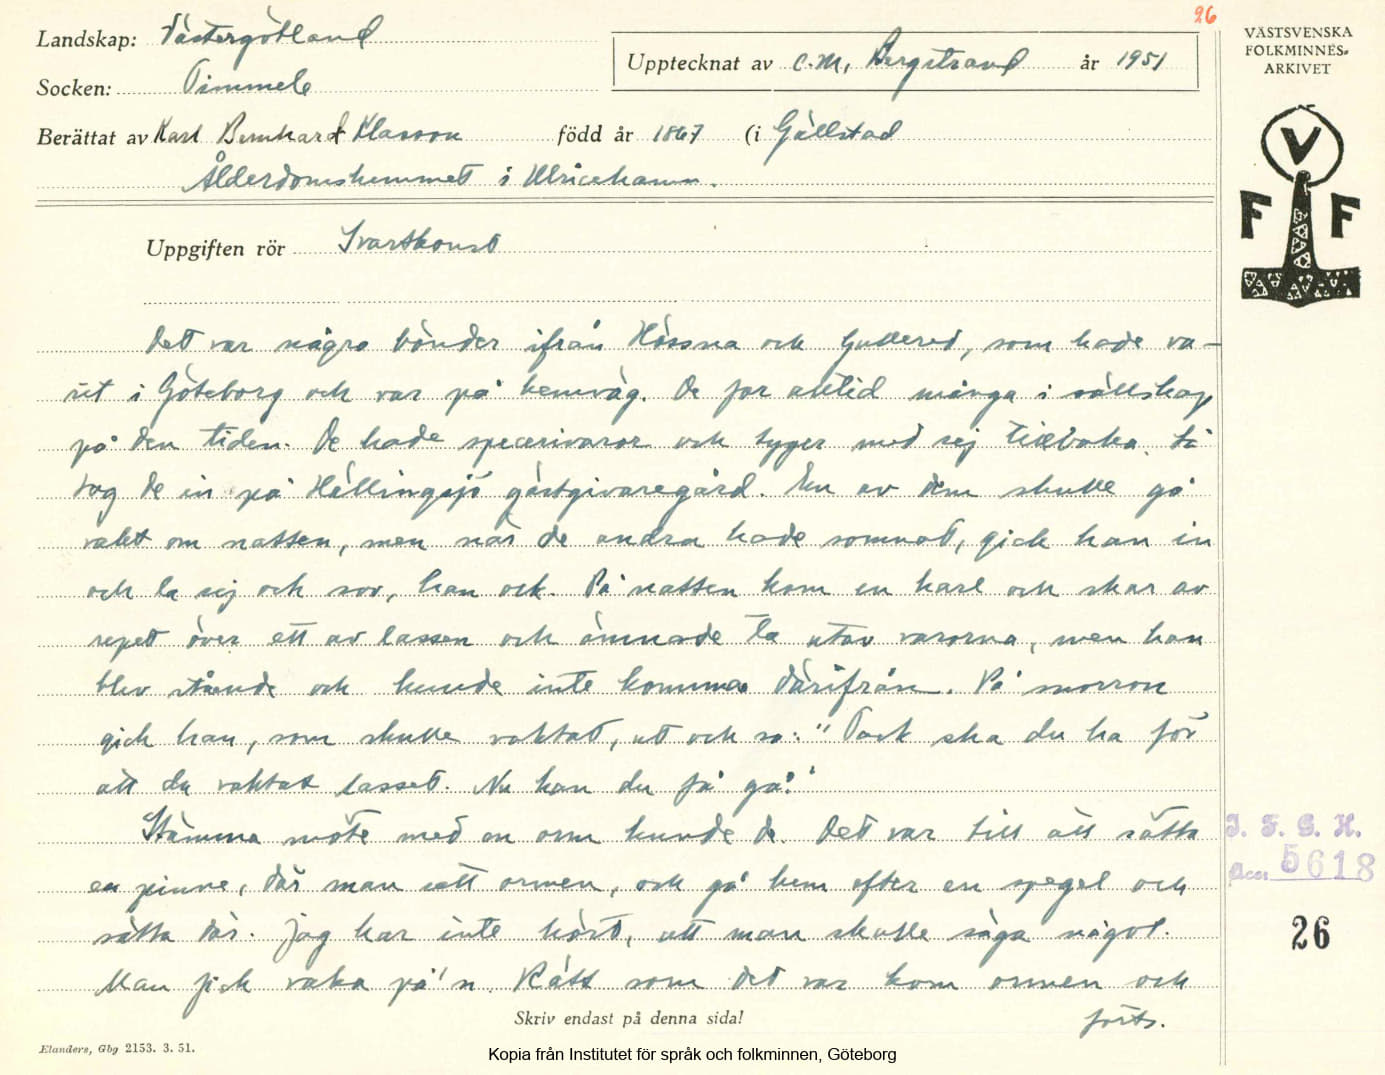 26
Landskap: Västergötland
Upptecknat av C.M. Bergstrand år 1951
VÄSTSVENSKA
FOLKMINNES-
ARKIVET
Socken: Timmele
Berättat av Karl Bernhard Klasson född år 1867 (i Gällstad
Ålderdomshemmet i Ulricehamn.
V
F F
Uppgiften rör Svartkonst
Det var några bönder ifrån Hössna och Gullered, som hade va-
rit i Göteborg och var på hemväg. De for alltid många i sällskap
på den tiden. De hade specerivaror och tyger med sej tillbaka. Så
tog de in på Hällingsjö gästgivaregård. En av dem skulle gå
vakt om natten, men när de andra hade somnat, gick han in
och la sej och sov, han ock. På natten kom en karl och skar av
repet över ett av lassen och ämnade ta utav varorna, men han
blev stående och kunde inte komma därifrån. På morron
gick han, som skulle vaktat, ut och sa: "Tack ska du ha för
att du vaktat lasset. Nu kan du få gå."
Stämma möte med en orm kunde de. Det var till att sätta
en pinne, där man sett ormen, och gå hem efter en spegel och
sätta där. Jag har inte hört, att man skulle säga något.
Man fick vaka på'n. Rätt som det var kom ormen och
forts.
I. F. G. H.
Acc. 5618
26
Skriv endast på denna sida!
Elanders, Gbg 2153. 3. 51.
Kopia från Institutet för språk och folkminnen, Göteborg